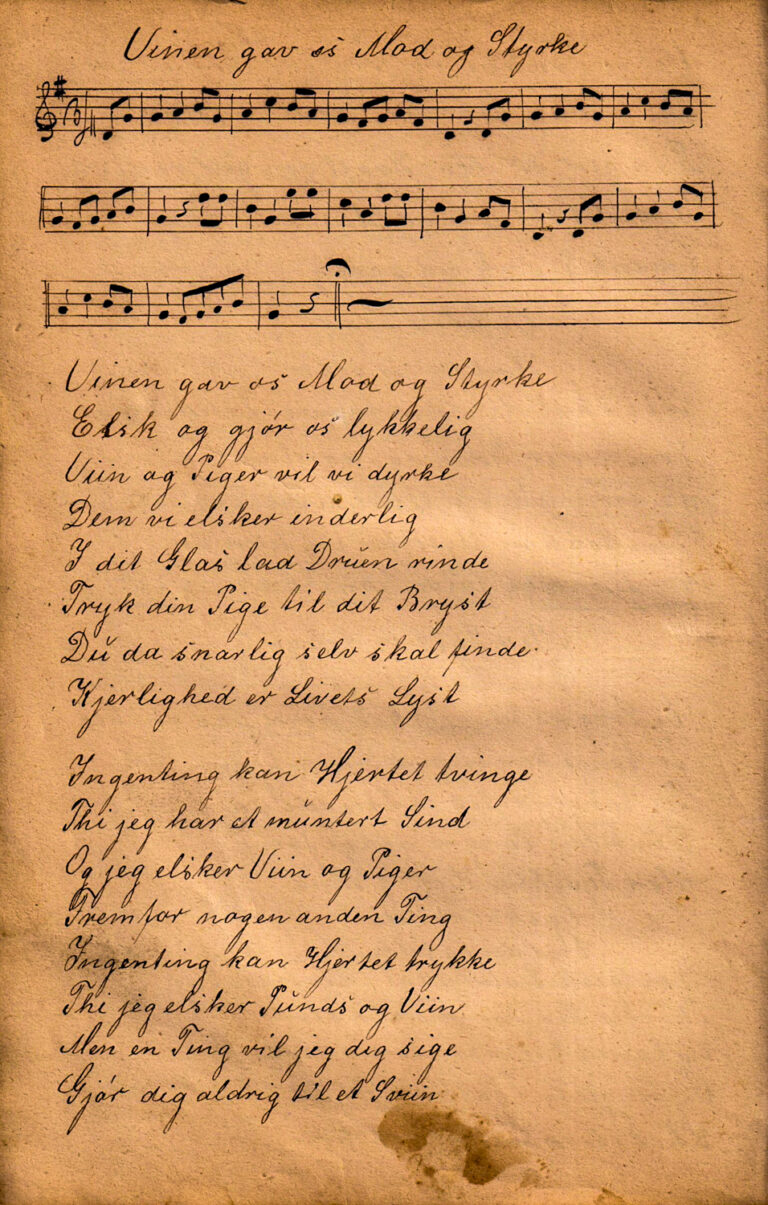 Vinen gav os Mod og Styrke
Vinen gav os Mod og Styrke
Elsk og gjör os lykkelig
Viin og Piger vil vi dyrke
Dem vi elsker inderlig
I dit Glas lad Druen rinde
Tryk din Pige til dit Bryst
Du da snarlig selv skal finde
Kjerlighed er Livets Lyst
Ingenting kan Hjertet tvinge
Thi jeg har et muntert Sind
Og jeg elsker Viin og Piger
Fremfor nogen anden Ting
Ingenting kan Hjertet trykke
Thi jeg elsker Punds og Viin
Men en Ting vil jeg dig sige
Gjör dig aldrig til et Sviin